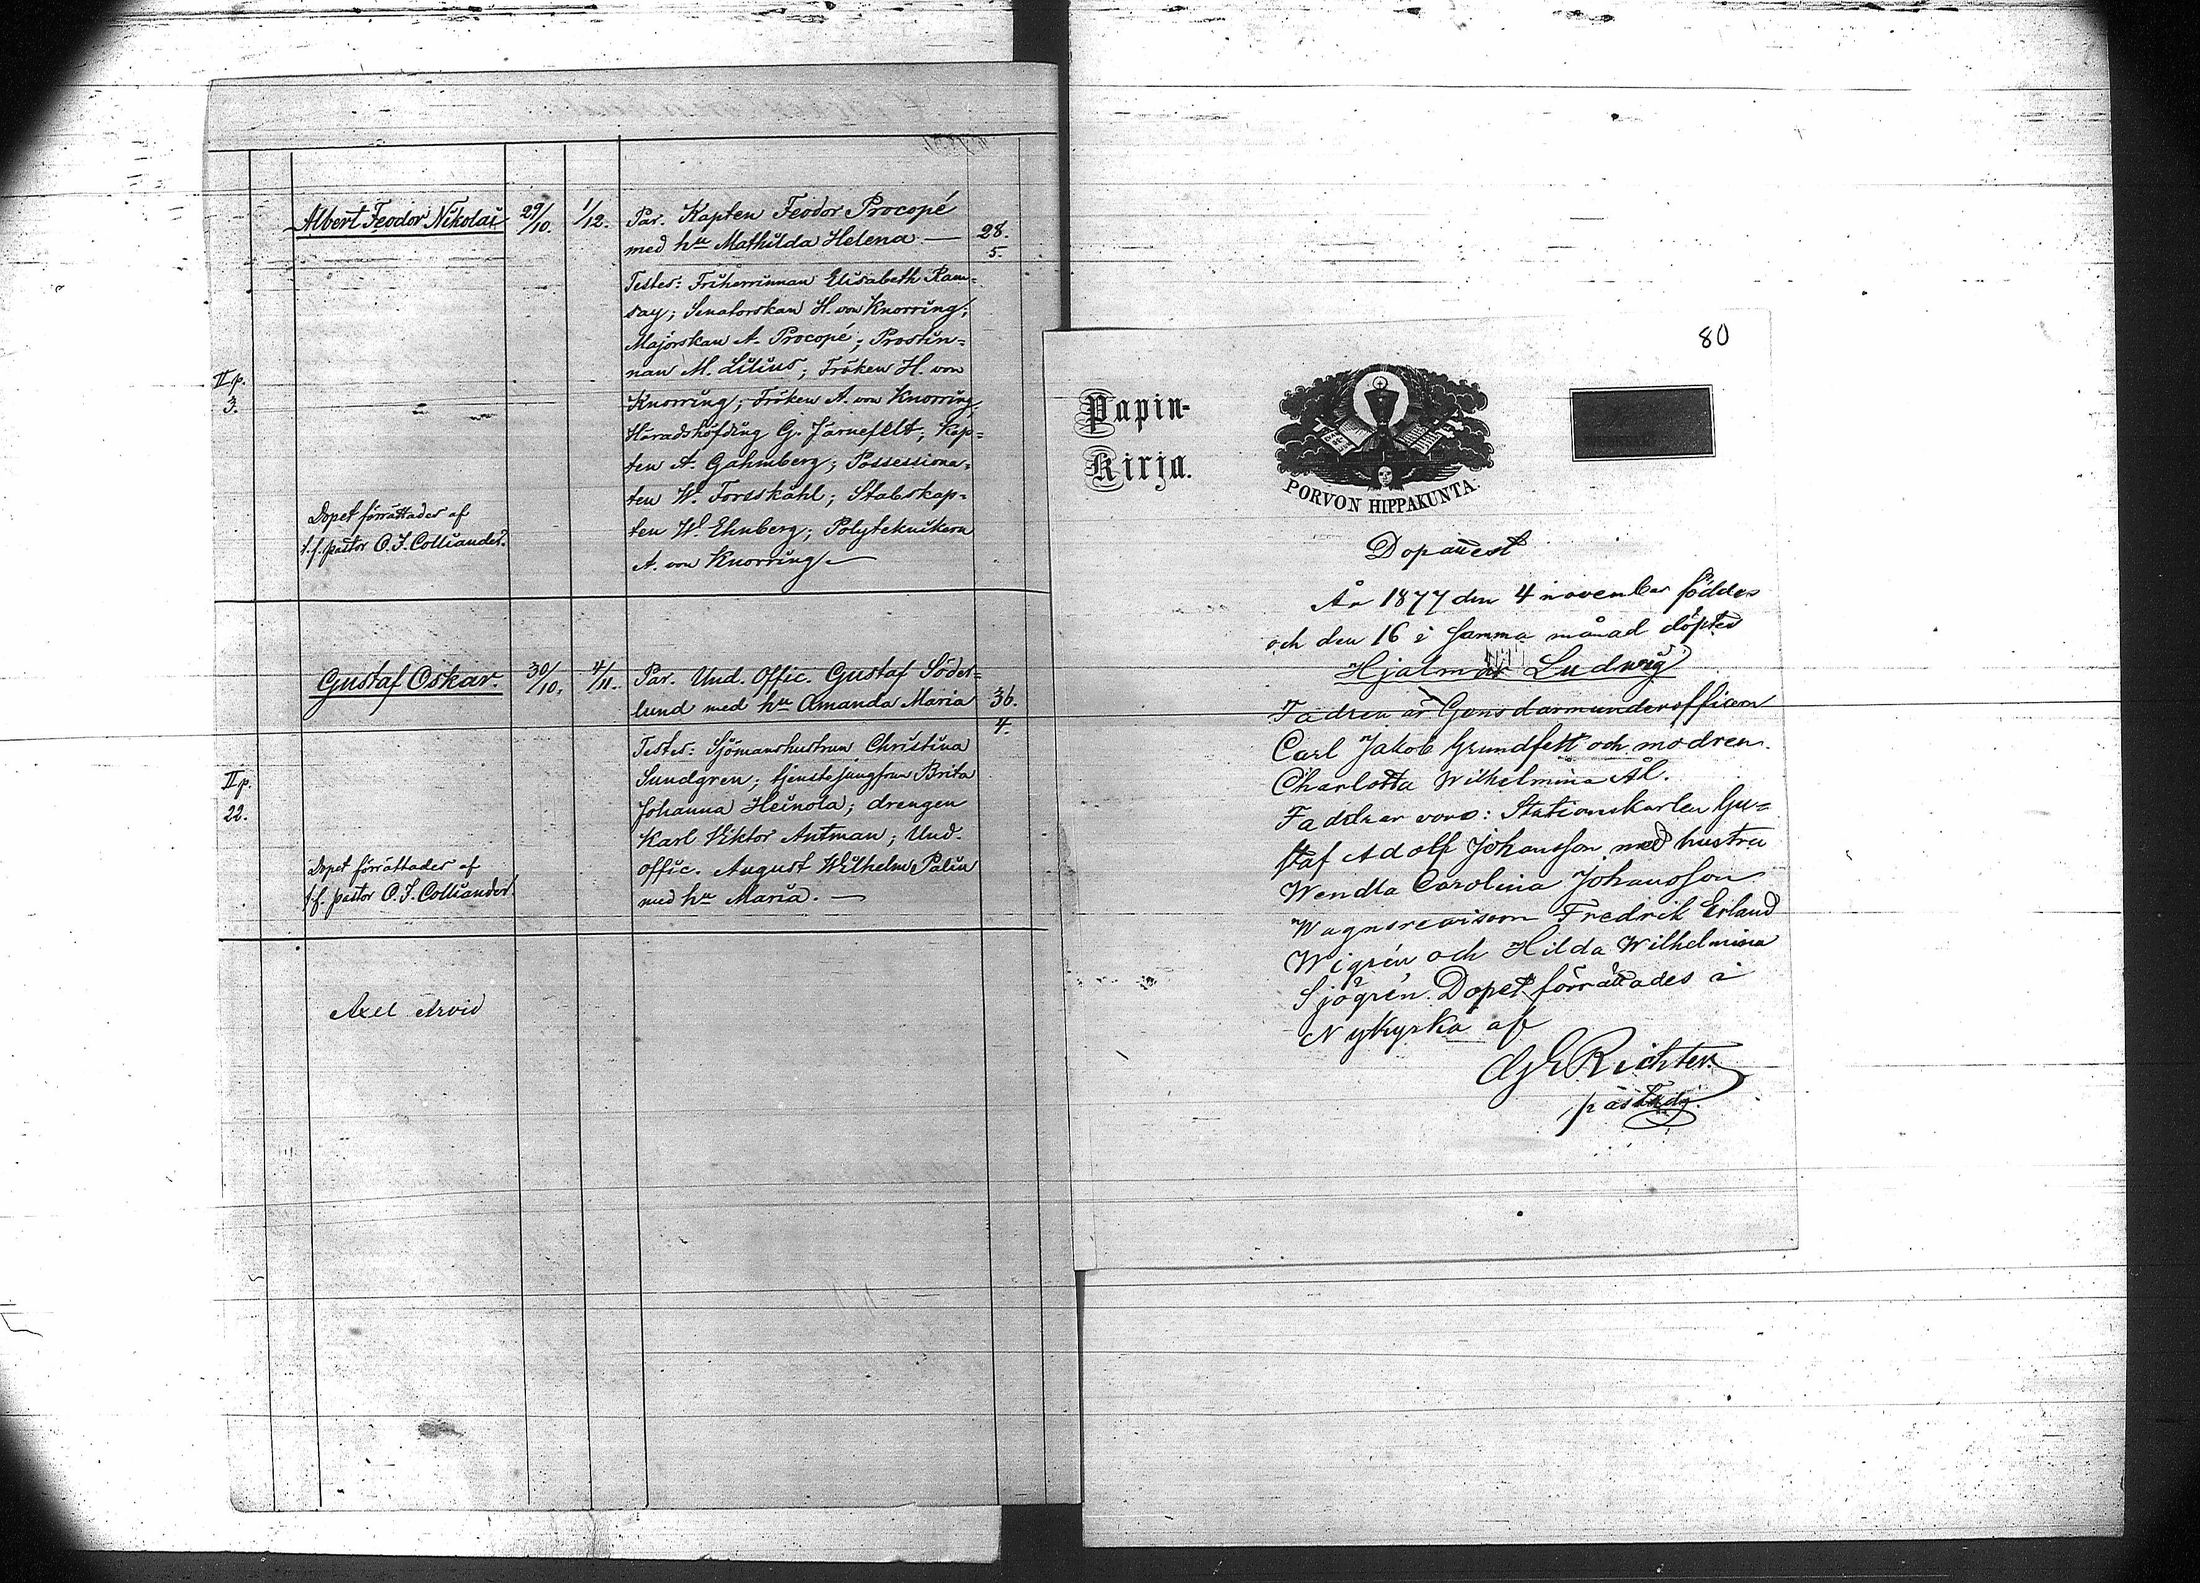 Albert Feodor Nikolai
29/10.
1/12.
Par. Kapten Feodor Procopé
med hu Mathilda Helena —
28.
5.
Testes: Friherrinnan Elisabeth Ram-
say; Senatorskan H. von Knorring;
Majorskan A. Procopé; Prostin-
nan M. Lilius; Fröken H. von
Knorring; Fröken A. von Knorring,
Häradshöfding G. Järnefelt; Kap-
ten A. Gahmberg; Possessiona-
ten W. Forsskåhl; Stabskap-
ten W. Ehnberg; Polyteknikern
A. von Knorring —
II p.
3.
Dopet förrättades af
t.f. pastor O. I. Colliander.
Gustaf Oskar.
30/10.
4/11.
Par. Und. Offic. Gustaf Söder-
lund med hu Amanda Maria
36.
4.
Testes: Sjömanshustrun Christina
Sundgren; tjenstejungfrun Brita
Johanna Heinola; drengen
Karl Viktor Antman; Und.
offic. August Wilhelm Palin
med hu Maria. —
II p.
22.
Dopet förrättades af
t.f. pastor O. I. Colliander
Axel Arvid
80
Papin-
Kirja.
PORVON HIPPAKUNTA.
Dopattest
År 1877 den 4 november föddes
och den 16 i samma månad döptes
Hjalmar Ludwig
Fadren är Gensdarmunderofficern
Carl Jakob Grundfelt och modren
Charlotta Wilhelmina Ål.
Faddrar voro: Stationskarlen Gu-
staf Adolf Johansson med hustru
Wendla Carolina Johansson
Wagnsrevisorn Fredrik Erland
Wigrén och Hilda Wilhelmina
Sjögrén. Dopet förrättades i
Nykyrka af
Richter.